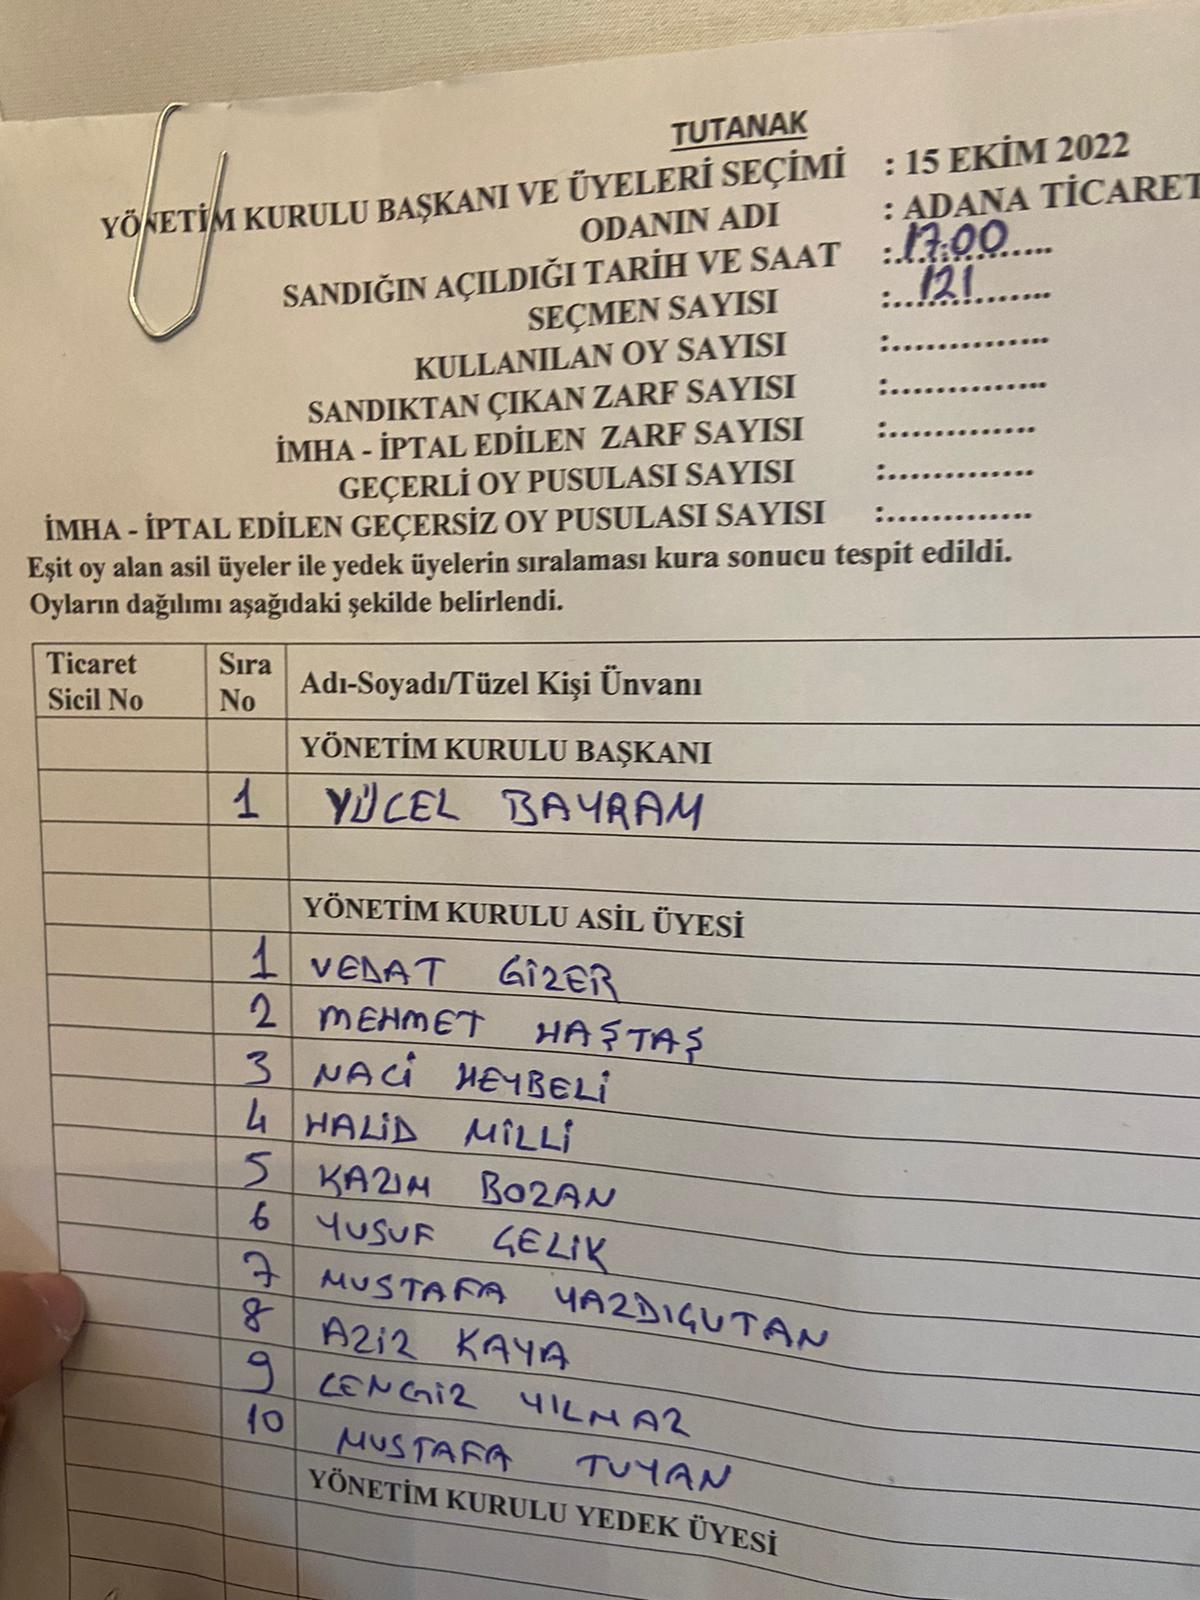 TUTANAK
YÖNETİM KURULU BAŞKANI VE ÜYELERİ SEÇİMİ : 15 EKİM 2022
ODANIN ADI : ADANA TİCARET
SANDIĞIN AÇILDIĞI TARİH VE SAAT : 17:00
SEÇMEN SAYISI : 121
KULLANILAN OY SAYISI :..............
SANDIKTAN ÇIKAN ZARF SAYISI :..............
İMHA - İPTAL EDİLEN ZARF SAYISI :.............
GEÇERLİ OY PUSULASI SAYISI :.............
İMHA - İPTAL EDİLEN GEÇERSİZ OY PUSULASI SAYISI :.............
Eşit oy alan asil üyeler ile yedek üyelerin sıralaması kura sonucu tespit edildi.
Oyların dağılımı aşağıdaki şekilde belirlendi.
Ticaret Sicil No Sıra No Adı-Soyadı/Tüzel Kişi Ünvanı
YÖNETİM KURULU BAŞKANI
1 YÜCEL BAYRAM
YÖNETİM KURULU ASİL ÜYESİ
1 VEDAT GİZER
2 MEHMET HAŞTAŞ
3 NACİ HEYBELİ
4 HALİD MİLLİ
5 KAZIM BOZAN
6 YUSUF ÇELİK
7 MUSTAFA YAZDIÇUTAN
8 AZİZ KAYA
9 CENGİZ YILMAZ
10 MUSTAFA TUYAN
YÖNETİM KURULU YEDEK ÜYESİ